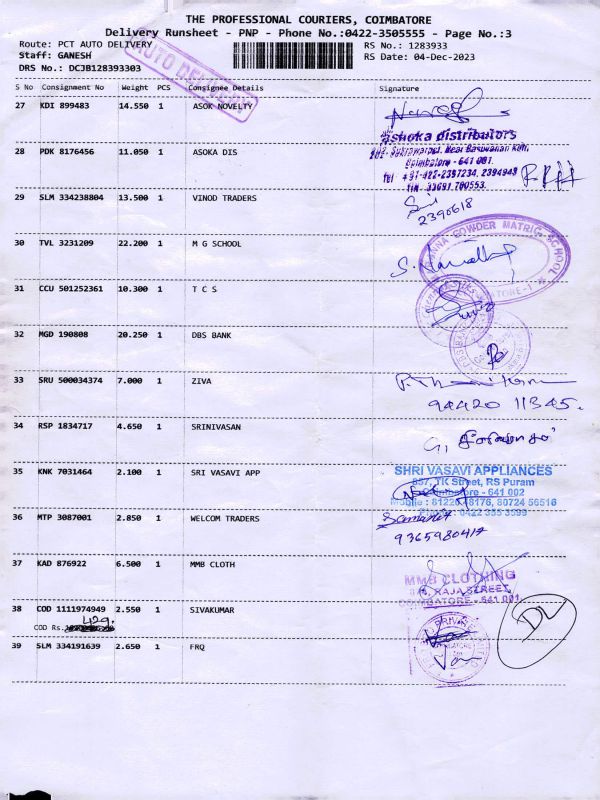 THE PROFESSIONAL COURIERS, COIMBATORE
Delivery Runsheet - PNP - Phone No.:0422-3505555 - Page No.:3
Route: PCT AUTO DELIVERY
RS No.: 1283933
Staff: GANESH
RS Date: 04-Dec-2023
DRS No.: DCJB128393303
AUTO DELIVERY
S No Consignment No Weight PCS Consignee Details Signature
27 KDI 899483 14.550 1 ASOK NOVELTY
28 PDK 8176456 11.050 1 ASOKA DIS
ashoka distributors
Coimbatore - 641 001.
Tel : +91-422-2397234, 2394949
29 SLM 334238804 13.500 1 VINOD TRADERS
2390618
30 TVL 3231209 22.200 1 M G SCHOOL
GOWDER MATRIC. SCHOOL
31 CCU 501252361 10.300 1 T C S
32 MGD 190808 20.250 1 DBS BANK
33 SRU 500034374 7.000 1 ZIVA
94420 11345.
34 RSP 1834717 4.650 1 SRINIVASAN
35 KNK 7031464 2.100 1 SRI VASAVI APP
SHRI VASAVI APPLIANCES
557, TK Street, RS Puram
Coimbatore - 641 002
80724 56516
36 MTP 3087001 2.850 1 WELCOM TRADERS
9365980417
37 KAD 876922 6.500 1 MMB CLOTH
MMB CLOTHING
RAJA STREET,
COIMBATORE - 641 001.
38 COD 1111974949 2.550 1 SIVAKUMAR
COD Rs. 429.
DL
39 SLM 334191639 2.650 1 FRQ